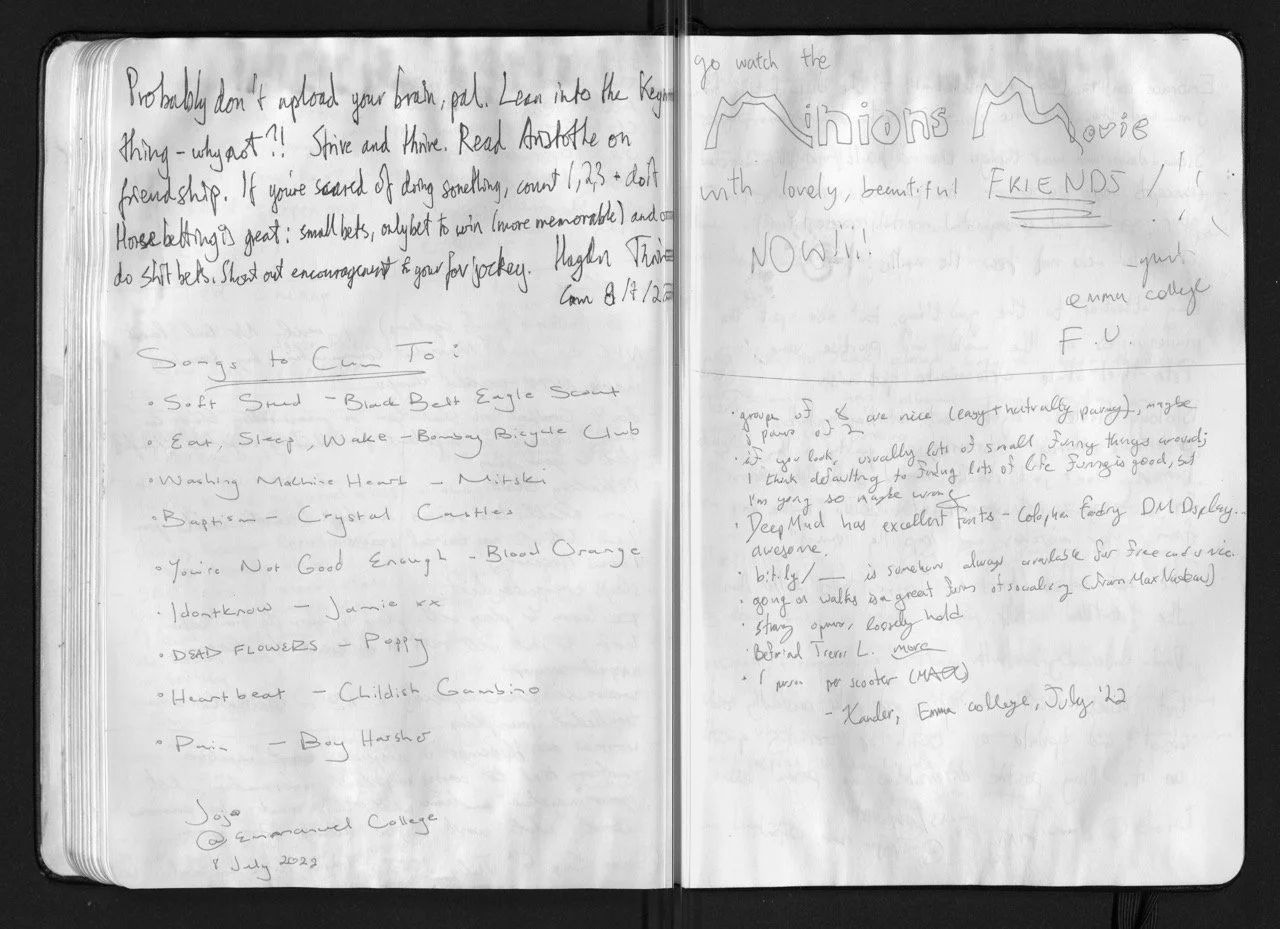 Probably don't upload your brain, pal. Lean into the
thing – why not?!! Strive and thrive. Read Aristotle on
friendship. If you're scared of doing something, count 1,2,3 + do it
Horse betting is great: small bets, only bet to win (more memorable) and
do shit bets. Shout out encouragement to your fav jockey. Hayden
Cam 8/7/22
Songs to Cum To:
• Soft Stud – Black Belt Eagle Scout
• Eat, Sleep, Wake – Bombay Bicycle Club
• Washing Machine Heart – Mitski
• Baptism – Crystal Castles
• You're Not Good Enough – Blood Orange
• Idontknow – Jamie xx
• DEAD FLOWERS – Poppy
• Heartbeat – Childish Gambino
• Pain – Boy Harsher
Jojo
@ Emmanuel College
8 July 2022
go watch the
Minions Movie
with lovely, beautiful FRIENDS
NOW!!!!
emma college
F.U.
• groups of are nice (easy + naturally), maybe
of 2
• if you look, usually lots of small funny things around;
I think defaulting to finding lots of life funny is good, but
I'm young so maybe wrong
• DeepMind has excellent fonts – Colophon Foundry DM Display...
awesome.
• bit.ly/__ is somehow always available for free and is nice.
• going on walks is a great form of socialising (from Max)
• strong opinions, loosely held
• Befriend Trevor L. more
• 1 person per scooter (MAX)
– Xander, Emma college, July '22